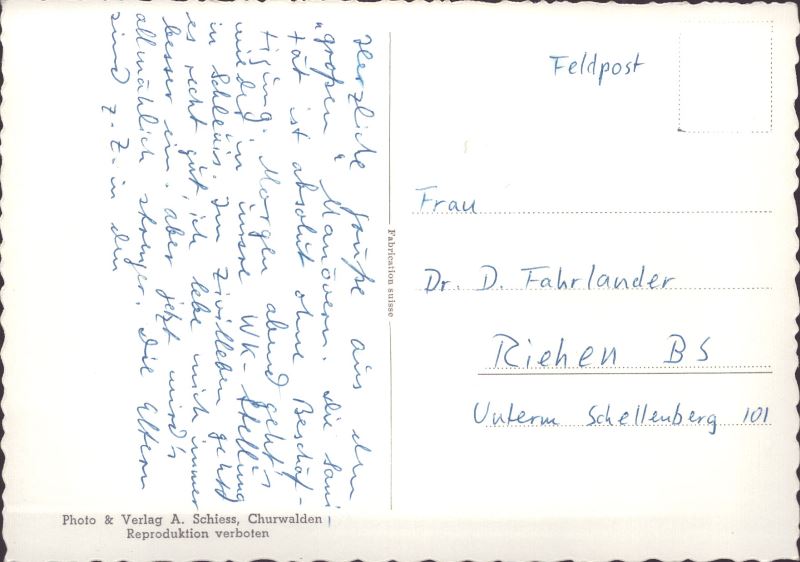 Herzliche Grüße aus den
"großen" Manövern. Die Sani-
tät ist absolut ohne Beschäf-
tigung. Morgen abend geht's
wieder in unsre WK-Stellung
in Schleuis. Im Zivilleben gehts
es recht gut, ich lebe mich immer
besser ein. aber jetzt wird's
allmählich strenger. Die Eltern
sind z. Z. in den
Fabrication suisse
Photo & Verlag A. Schiess, Churwalden
Reproduktion verboten
Feldpost
Frau
Dr. D. Fahrlander
Riehen BS
Unterm Schellenberg 101